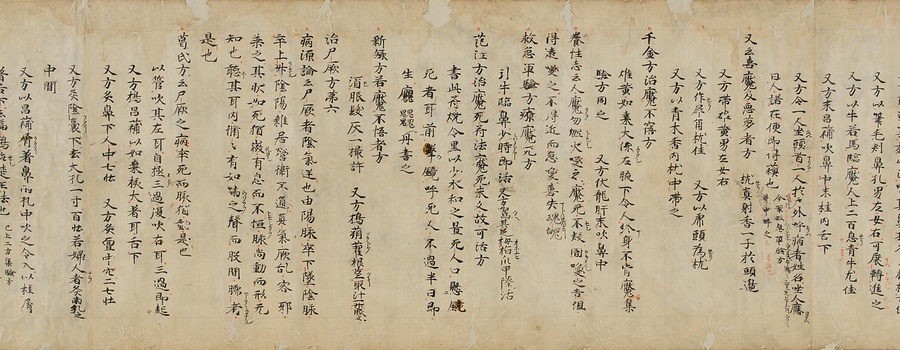 又方以筆毛刺鼻孔男左女右可展轉進之
又方以牛若馬臨魘人上二百息青牛尤佳
又方末昌蒲吹鼻中末桂內舌下
又方令一人坐頭首一人於戶外呼病者姓名坐人應
曰人諾在便即得蘓也
又云惡魘及惡夢者方 枕真射香一子於頭邊
又方帶雄黃男左女右
又方作犀角枕佳 又方以虎頭為枕
又方以青木香內枕中帶之
千金方治魘不寤方
雄黃如棗大係左腋下令人終身不肯魘集
驗方同之 又方伏龍肝末吹鼻中
養性志云人魘勿燃火喚之魘死不疑闇喚之吉但
得遠喚之不得近而急喚喜失魂魄
救急單驗方療魘死方
引牛臨鼻少時即活又方
范汪方治魘死符法魘死未久故可治方
書此符燒令黑以少水和之置死人口懸鏡
死者耳前擊鏡呼死人不過半日即
生 丹書之
新録方若魘不悟者方
酒服髮灰一撮許 又方搗根莖取汁服之
治尸厥方第六
病源論云尸厥者陰氣逆也由陽脉卒下墜陰脉
卒上升陰陽離居營衛不通真氣厥乱客邪
乘之其狀如死猶微有息而不恒脉尚動而形无
知也聽其耳內循々有如嘯之聲而股間暖者
是也
葛氏方云尸厥之病卒死而脉猶動是也
以管吹其左耳自極三過復吹右耳三過即起
又方搗昌蒲以如棗核大著耳舌下
又方灸鼻下人中七壯 又方灸膻中穴二七壯
又方灸陰囊下去大孔一寸百壯若婦人者灸兩乳之
中間
又方以昌蒲屑著鼻兩孔中吹之令人以桂屑